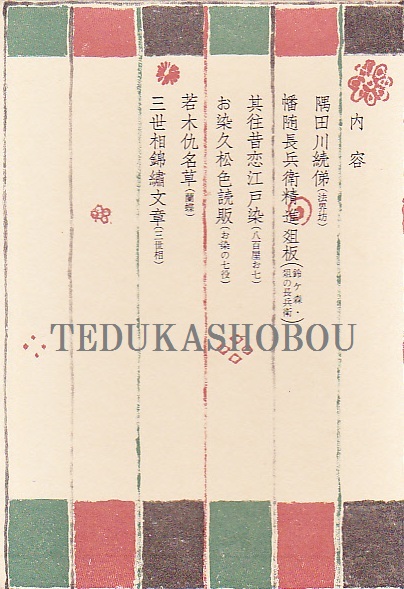 内容
隅田川続俤(法界坊)
幡随長兵衛精進爼板(鈴ヶ森・爼の長兵衛)
其往昔恋江戸染(八百屋お七)
お染久松色読販(お染の七役)
若木仇名草(蘭蝶)
三世相錦繡文章(三世相)
TEDUKASHOBOU